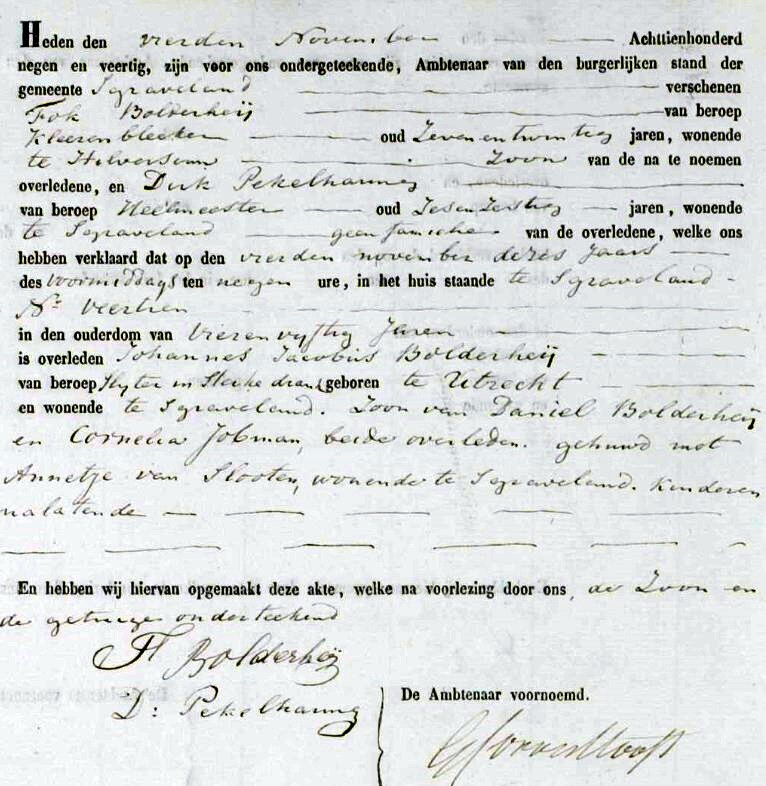 Heden den vierden November Achttienhonderd
negen en veertig, zijn voor ons ondergeteekende, Ambtenaar van den burgerlijken stand der
gemeente Sgraveland verschenen
Fok Bolderheij van beroep
Kleerenbleeker oud Zevenentwintig jaren, wonende
te Hilversum Zoon van de na te noemen
overledene, en Dirk Pekelharing
van beroep Heelmeester oud Zesenzestig jaren, wonende
te Sgraveland geen familie van de overledene, welke ons
hebben verklaard dat op den vierden november dezes Jaars
des voormiddags ten negen ure, in het huis staande te Sgraveland
Nr. Veertien
in den ouderdom van Vierenvyftig Jaren
is overleden Johannes Jacobus Bolderheij
van beroep Slyter in Sterke drank geboren te Utrecht
en wonende te Sgraveland. Zoon van Daniel Bolderheij
en Cornelia Jobman, beide overleden. gehuwd met
Annetje van Slooten, wonende te Sgraveland. Kinderen
nalatende
En hebben wij hiervan opgemaakt deze akte, welke na voorlezing door ons, de Zoon en
de getuige onderteekend
F Bolderheij
D: Pekelharing
De Ambtenaar voornoemd.